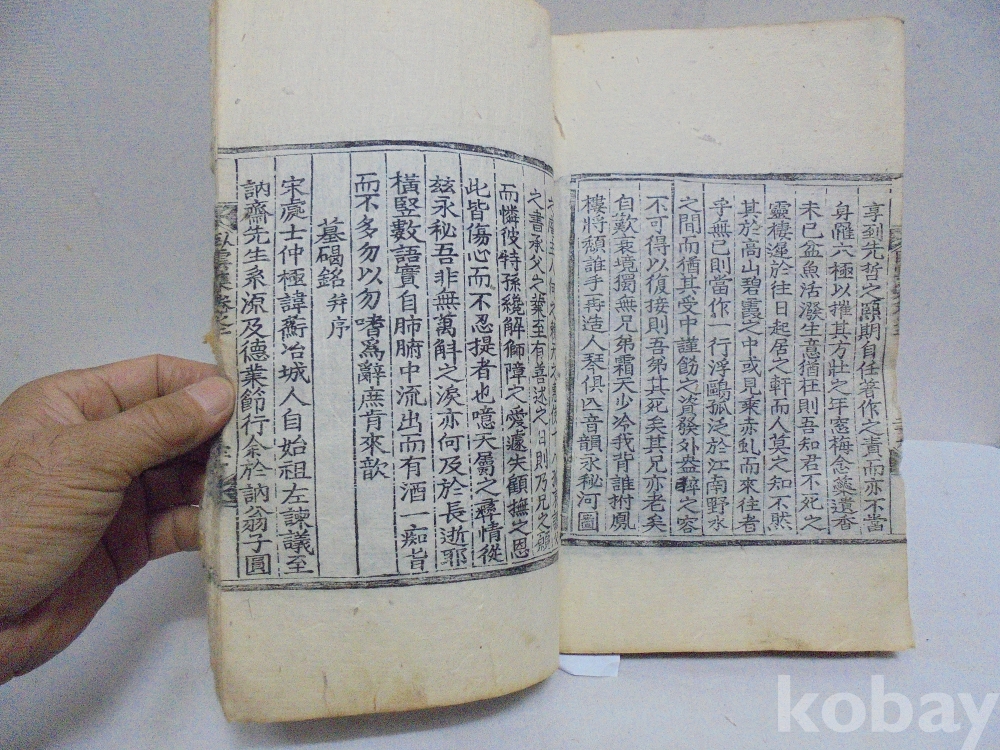 享到先哲之願期自任著作之責而亦不當
身罹六極以摧其方壯之年窓梅含蘂遺香
未已盆魚活潑生意猶在則吾知君不死之
靈棲遲於往日起居之軒而人莫之知不然
其於高山碧霞之中或見乘赤虬而來往者
乎無已則當作一行浮鷗孤泛於江南野水
之間而猶其受中謹飭之資發外益粹之容
不可得以復接則吾弟其死矣其兄亦老矣
自歎衰境獨無兄弟霜天少冷我背誰拊鳳
樓將頹誰手再造人琴俱亡音韻永秘河圖
之書承父之業至有善述之日則乃兄之
而憐彼特孫纔解獅障之愛遽失顧撫之恩
此皆傷心而不忍提者也噫天屬之尋情從
玆永秘吾非無萬斛之淚亦何及於長逝耶
橫竪數語實自肺腑中流出而有酒一痴旨
而不多勿以勿嗜爲辭庶肯來歆
墓碣銘 幷序
宋處士仲極諱衡冶城人自始祖左諫議至
訥齋先生系源及德業節行余於訥翁子圓
kobay